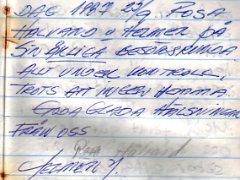 DAG 1987 23/9 ROSA
HALVARD O HELMER PÅ
SIN ÅRLIGA BESÖKSRUNDA.
ALLT UNDER KONTROLL,
TROTS ATT INGEN HEMMA.
GODA GLADA HÄLSNINGAR
FRÅN OSS
Rosa Halvard
HELMER